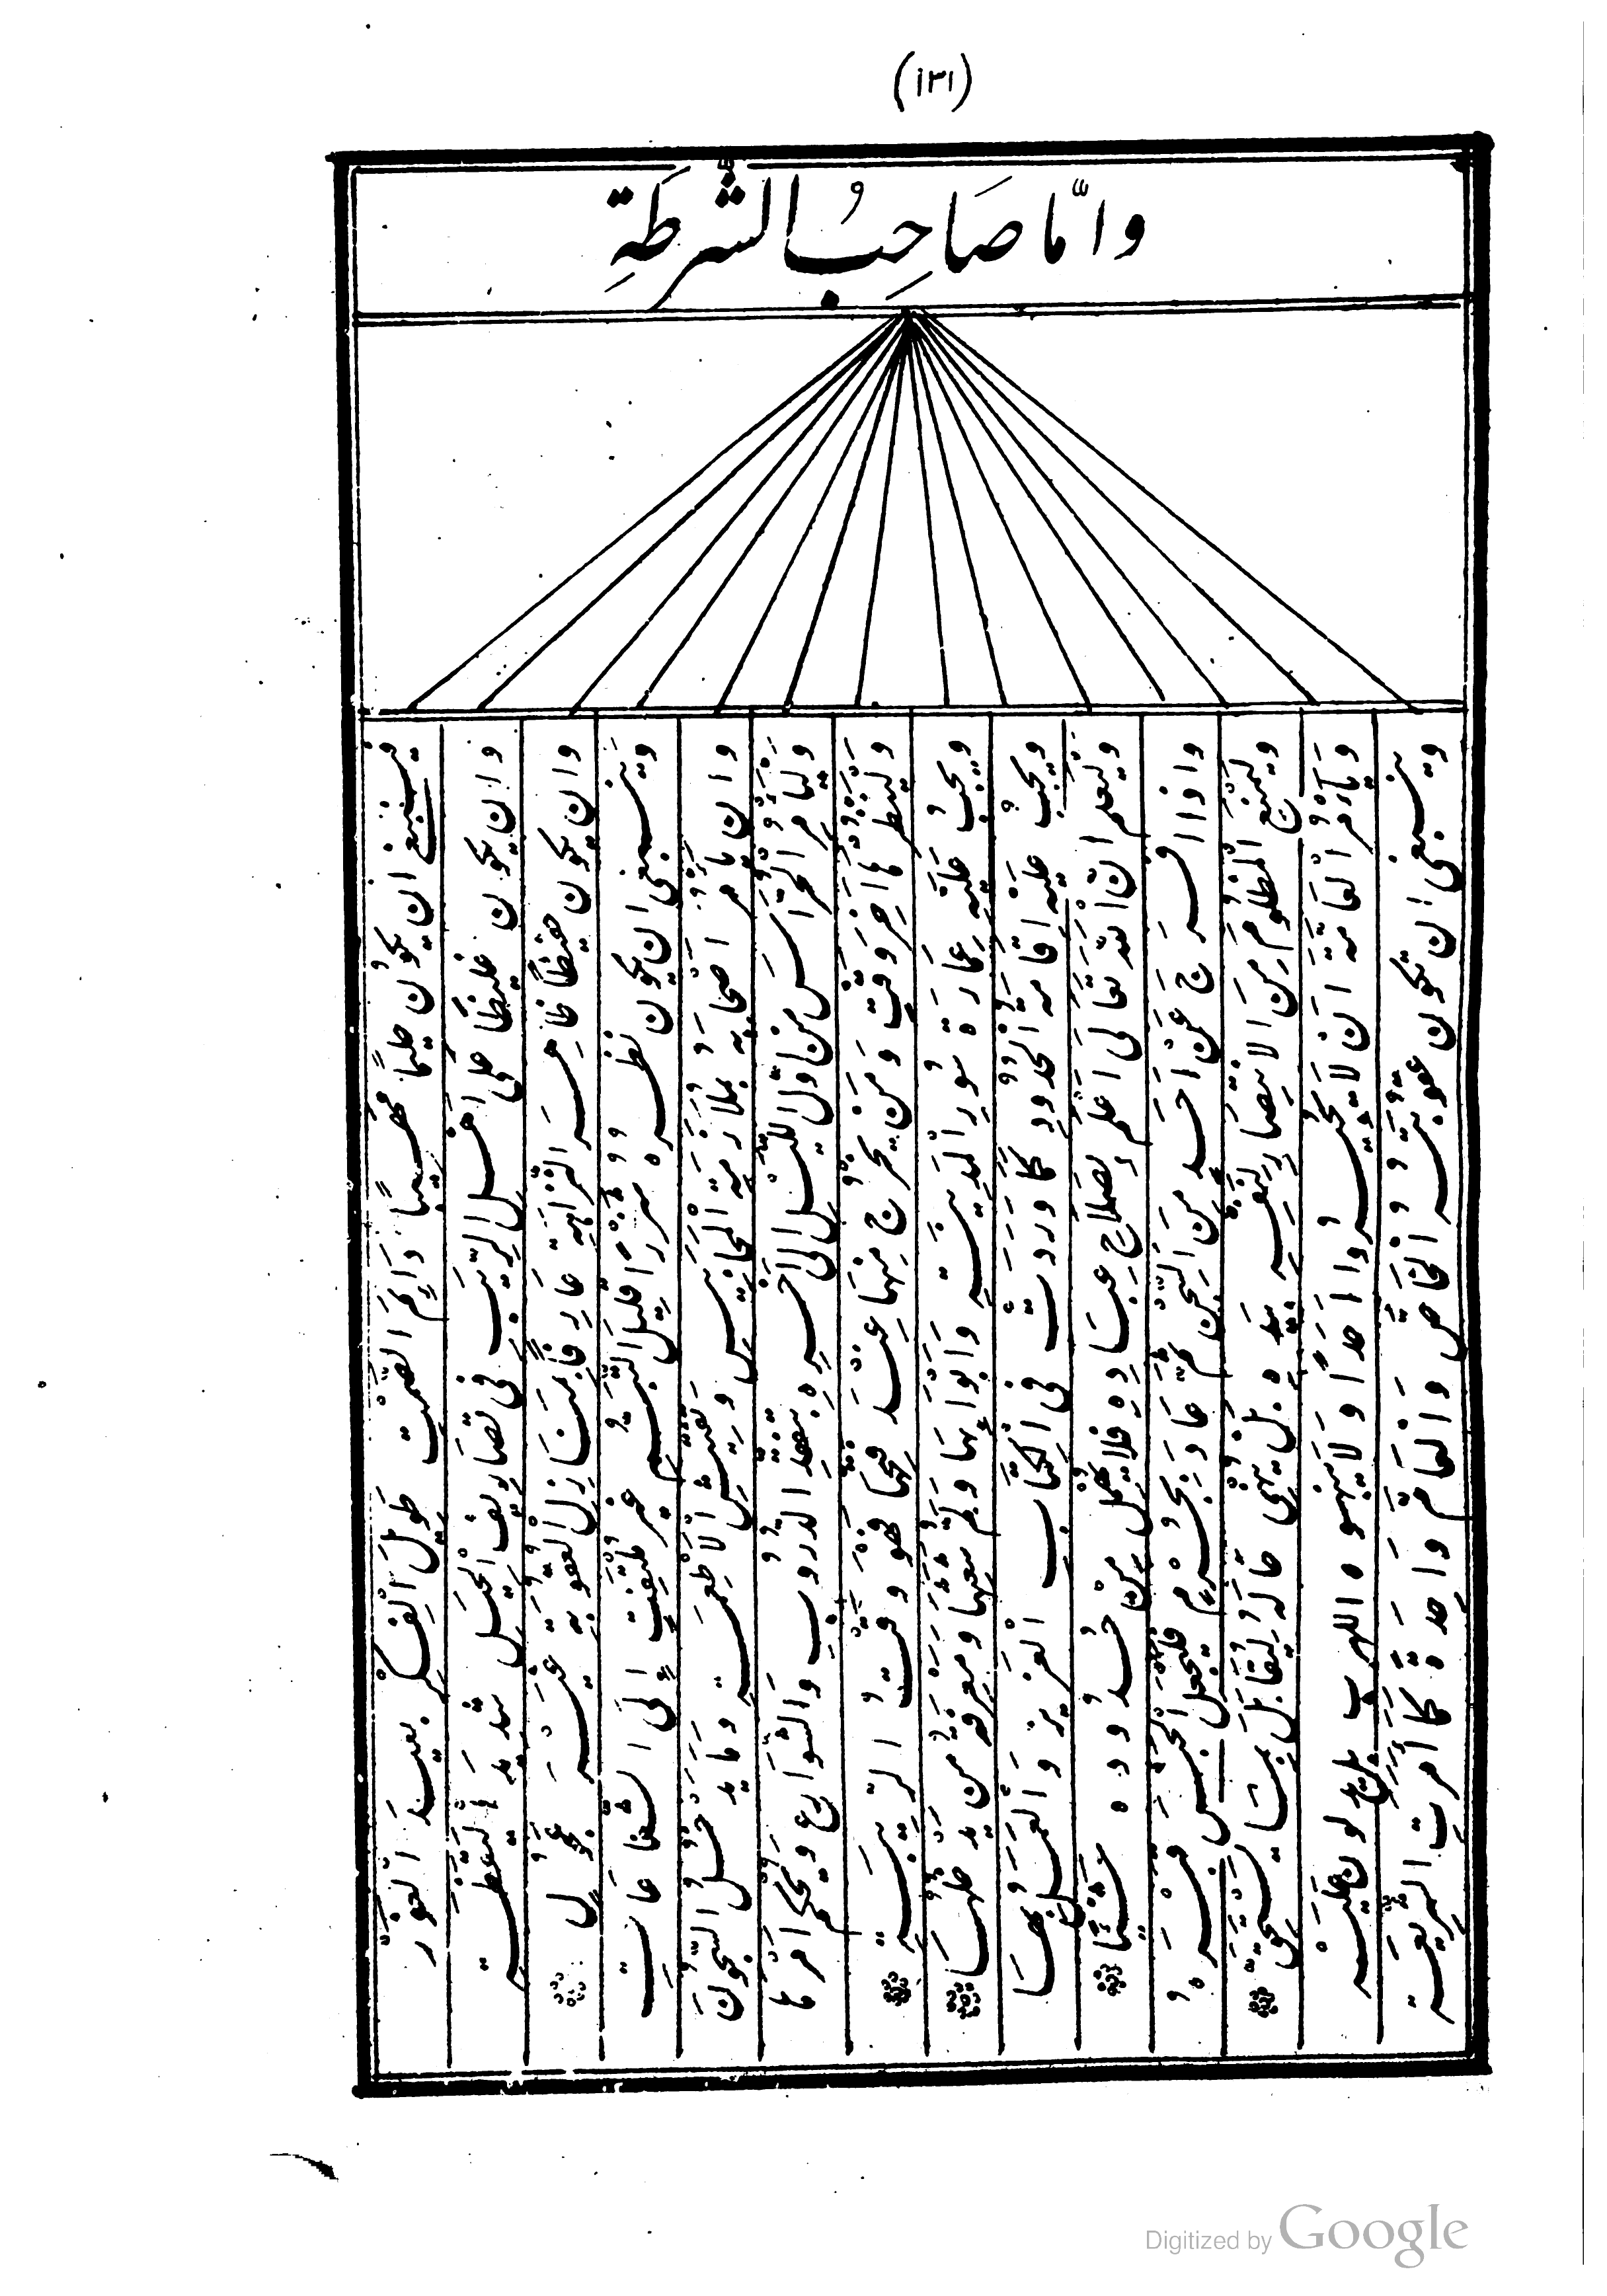 (١٣١)
وَامَّا صَاحِبُ الشُّرْطَةِ
فينبغى ان يكون حليمًا مهيبًا دَائِمَ الصَّمْتِ طَوِيلَ الْفِكْرِ بعيدَ الغَوْرِ
وان يكون غليظًا على اهل الرِّيَبِ فى تصاريف الحيل شديد اليقظة
وان يكون حفيظًا ظاهر النزاهة عارفًا بمنازل العقوبة غير عجول
وينبغى ان يكون نظره شزرًا قليل التبسم غير ملتفت الى الشفاعات
وان يأمر اصحابه بملازمة المحابيس وتفتيش الاطعمة وما يدخل السجون
وليأمر الحراس من اول الليل الى اخره بتفقد الدروب والشوارع ويحكم امرها
ولينظر ما اخر وقت ومن يخرج منها عند فتحها فهو وقت الريبة
ويجب عليه عمارة سور المدينة وابوابها ولم شعثها ومعرفة من يدخلها
ويجب عليه اقامة الحدود كما وردت فى الكتاب العزيز والعمل بها
وليعلم ان الله تعالى اعلم بصلاح عباده فلا يهمل من حدوده شيئًا
واذا افرج عن احد من السجن ثم عاد بجرم فليجعل الحبس قبره
وليمنع المظلوم من الانتصار لنفسه بيده بل ينهى حاله ليقابل بما يستحق
ويأمر العامة ان لا يجيروا احدًا ولا ينبهوه للهرب بل يدلون عليه
وينبغى ان تكون عقوبته فى الخاص والعام واحدة كما امرت الشريعة
Digitized by Google